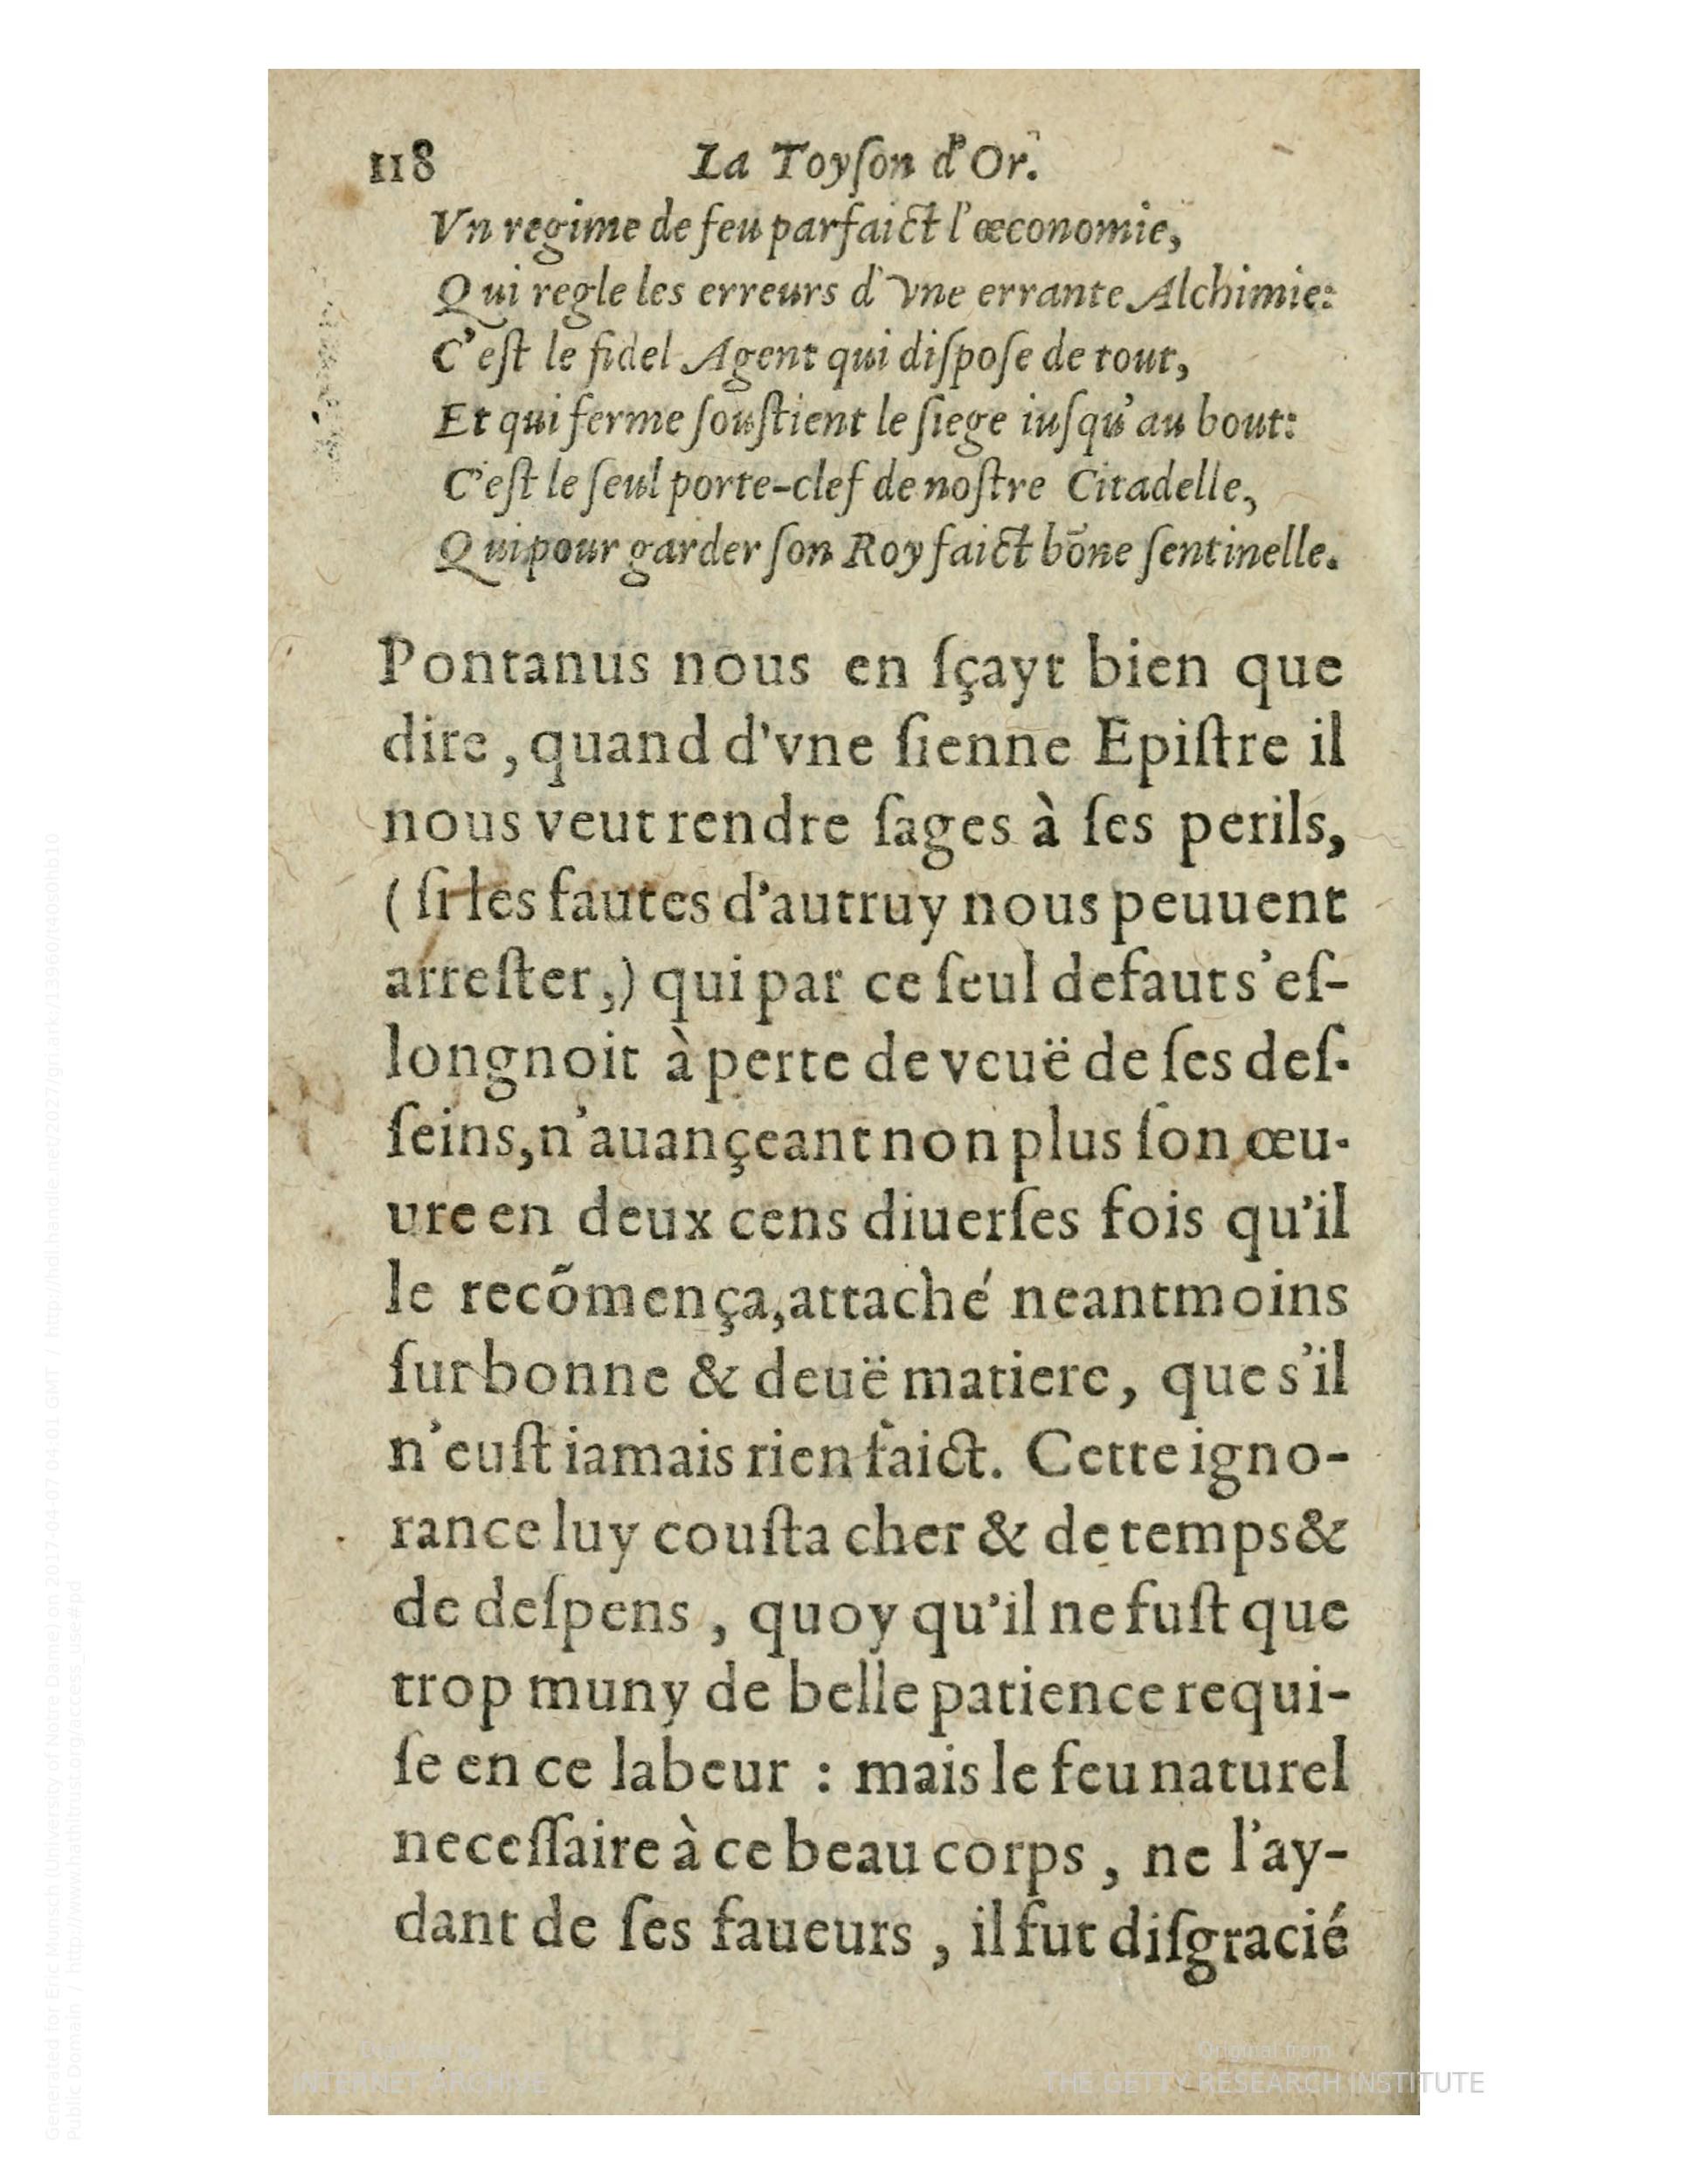 118 La Toyſon d'Or.
Vn regime de feu parfaict l'œconomie,
Qui regle les erreurs d'vne errante Alchimie:
C'eſt le fidel Agent qui diſpoſe de tout,
Et qui ferme ſouſtient le ſiege iuſqu'au bout:
C'eſt le ſeul porte-clef de noſtre Citadelle,
Qui pour garder ſon Roy faict bōne ſentinelle.
Pontanus nous en ſçayt bien que
dire, quand d'vne ſienne Epiſtre il
nous veut rendre ſages à ſes perils,
(ſi les fautes d'autruy nous peuuent
arreſter,) qui par ce ſeul defaut s'eſ-
longnoit à perte de veuë de ſes deſ-
ſeins, n'auançeant non plus ſon œu-
ure en deux cens diuerſes fois qu'il
le recōmença, attaché neantmoins
ſur bonne & deuë matiere, que s'il
n'euſt iamais rien faict. Cette igno-
rance luy couſta cher & de temps &
de deſpens, quoy qu'il ne fuſt que
trop muny de belle patience requi-
ſe en ce labeur : mais le feu naturel
neceſſaire à ce beau corps, ne l'ay-
dant de ſes faueurs, il fut diſgracié
Generated for Eric Munsch (University of Notre Dame) on 2017-04-07 04:01 GMT / http://hdl.handle.net/2027/gri.ark:/13960/t40s0hb10
Public Domain / http://www.hathitrust.org/access_use#pd
Digitized by
INTERNET ARCHIVE
Original from
THE GETTY RESEARCH INSTITUTE